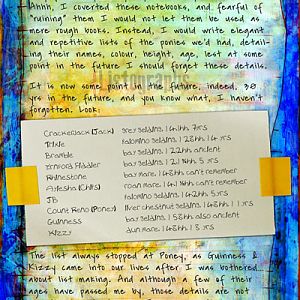 Ahhh, I coverted these notebooks, and fearful of
"ruining" them I would not let them be used as
mere rough books. Instead, I would write elegant
and repetitive lists of the ponies we'd had, detail-
ing their names, colour, height, age, lest at some
point in the future I should forget these details.
It is now some point in the future, indeed, 30
yrs in the future, and you know what, I haven't
forgotten. Look:
Crackerjack (Jack) grey gelding 14hh 7yrs
Trixie
Bramble bay gelding 12hh ancient
bay gelding 12.1hh 5 yrs
Rhinestone bay gelding 14hh can't remember
Ayesha (Chils) roan mare 14.1hh can't remember
JB palomino gelding 14.2hh 5 yrs
Count Reno (Poney) liver chestnut gelding 14hh 15 yrs
Guinness bay gelding 13hh also ancient
Kizzy dun mare 14hh 13 yrs
The list always stopped at Poney, as Guinness &
Kizzy came into our lives after I was bothered
about list making. And although a few of their
ages have passed me by, those details are not